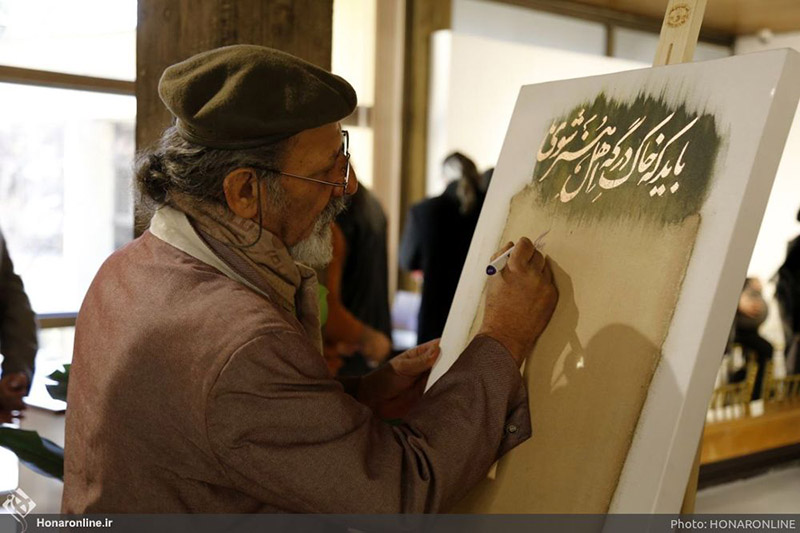 باید که خاک درگه اهل هنر شوی
Honaronline.ir
Photo: HONARONLINE